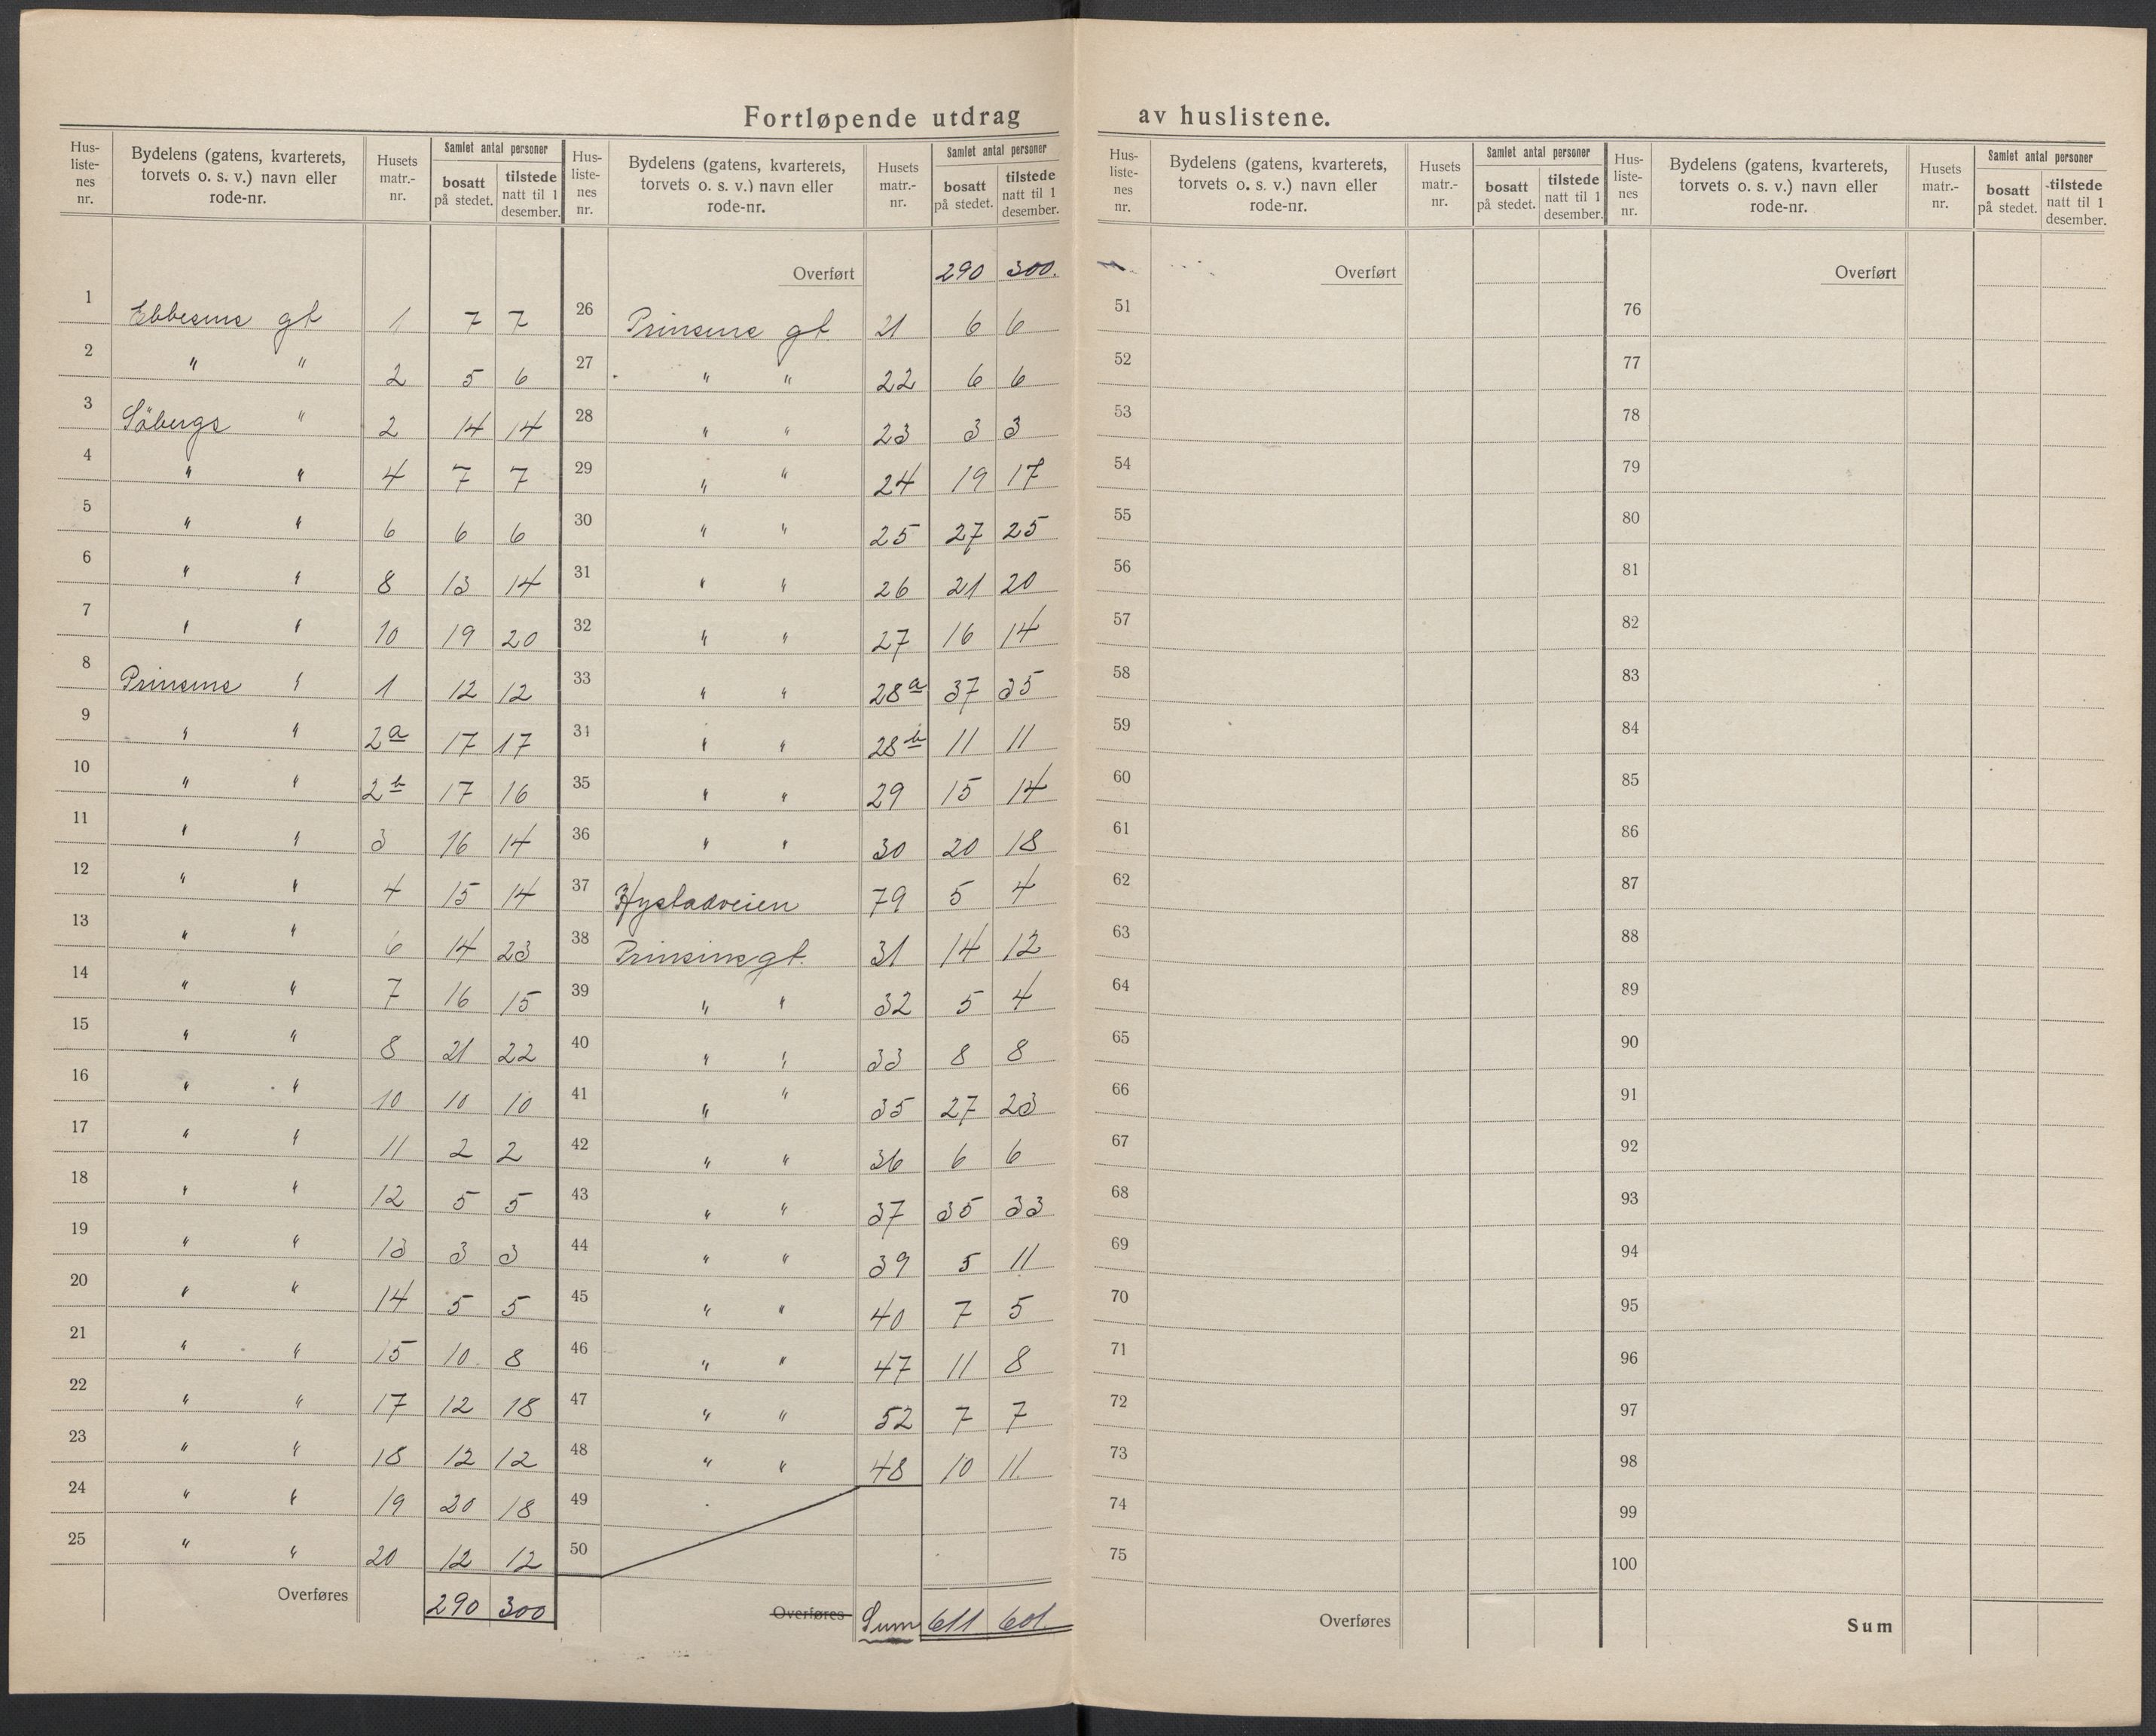 Fortløpende utdrag av huslistene.
Hus-liste-nes nr. | Bydelens (gatens, kvarterets, torvets o. s. v.) navn eller rode-nr. | Husets matr.-nr. | Samlet antal personer bosatt på stedet. | tilstede natt til 1 desember.
1 Ebbesens gt 1 7 7
2 " " 2 5 6
3 Söbergs " 2 14 14
4 " " 4 7 7
5 " " 6 6 6
6 " " 8 13 14
7 " " 10 19 20
8 Prinsens " 1 12 12
9 " " 2a 17 17
10 " " 2b 17 16
11 " " 3 16 14
12 " " 4 15 14
13 " " 6 14 23
14 " " 7 16 15
15 " " 8 21 22
16 " " 10 10 10
17 " " 11 2 2
18 " " 12 5 5
19 " " 13 3 3
20 " " 14 5 5
21 " " 15 10 8
22 " " 17 12 18
23 " " 18 12 12
24 " " 19 20 18
25 " " 20 12 12
Overføres 290 300
Hus-liste-nes nr. | Bydelens (gatens, kvarterets, torvets o. s. v.) navn eller rode-nr. | Husets matr.-nr. | Samlet antal personer bosatt på stedet. | tilstede natt til 1 desember.
Overført 290 300.
26 Prinsens gt. 21 6 6
27 " " 22 6 6
28 " " 23 3 3
29 " " 24 19 17
30 " " 25 27 25
31 " " 26 21 20
32 " " 27 16 14
33 " " 28a 37 35
31 " " 28b 11 11
35 " " 29 15 14
36 " " 30 20 18
37 Hystadveien 79 5 4
38 Prinsensgt. 31 14 12
39 " " 32 5 4
40 " " 33 8 8
41 " " 35 27 23
42 " " 36 6 6
43 " " 37 35 33
44 " " 39 5 11
45 " " 40 7 5
46 " " 47 11 8
47 " " 52 7 7
48 " " 48 10 11
49
50
Overføres Sum 611 601.
Hus-liste-nes nr. | Bydelens (gatens, kvarterets, torvets o. s. v.) navn eller rode-nr. | Husets matr.-nr. | Samlet antal personer bosatt på stedet. | tilstede natt til 1 desember.
Overført
51
52
53
54
55
56
57
58
59
60
61
62
63
64
65
66
67
68
69
70
71
72
73
74
75
Overføres
Hus-liste-nes nr. | Bydelens (gatens, kvarterets, torvets o. s. v.) navn eller rode-nr. | Husets matr.-nr. | Samlet antal personer bosatt på stedet. | tilstede natt til 1 desember.
Overført
76
77
78
79
80
81
82
83
84
85
86
87
88
89
90
91
92
93
94
95
96
97
98
99
100
Sum